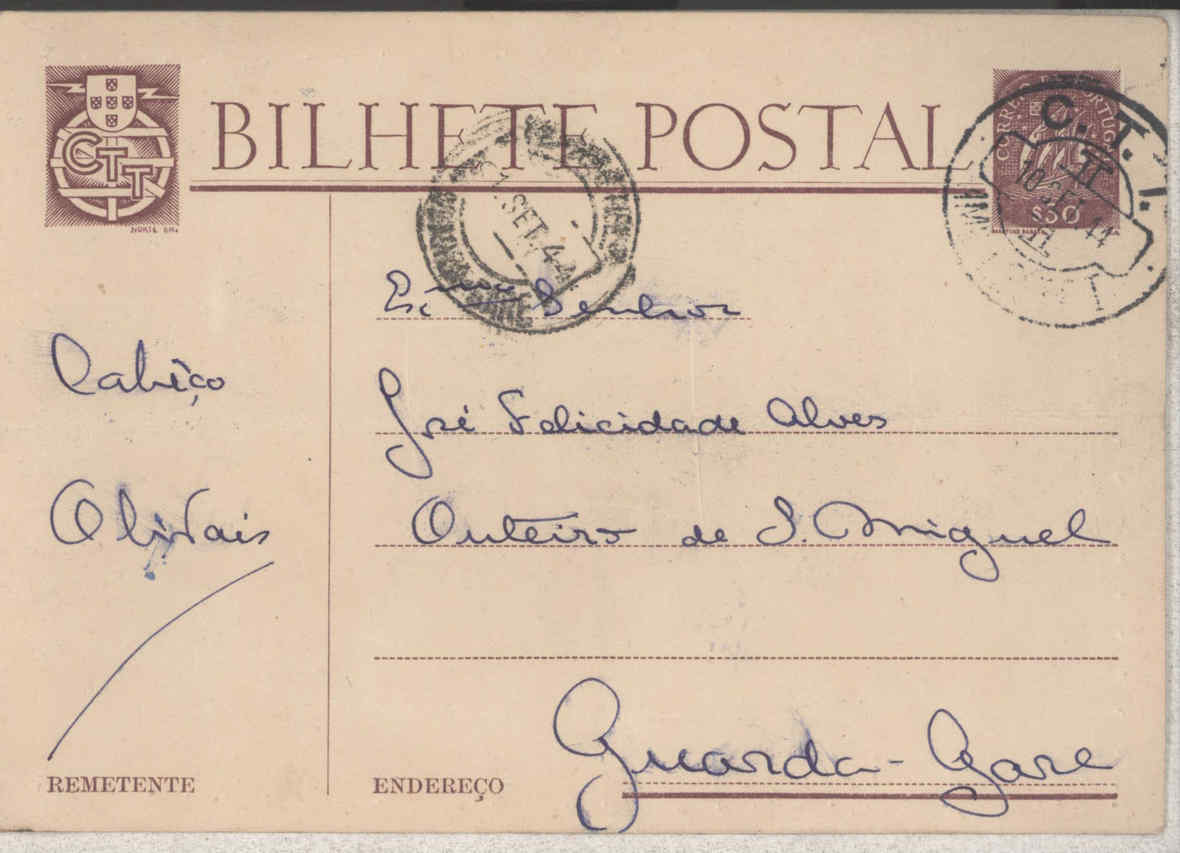 CTT
BILHETE POSTAL
CORREIO PORTUGAL
$30
C. T. T.
10 SET 44
SET. 44
Exmo Senhor
José Felicidade Alves
Outeiro de S. Miguel
Guarda-Gare
Cabêço
Olivais
REMETENTE
ENDEREÇO